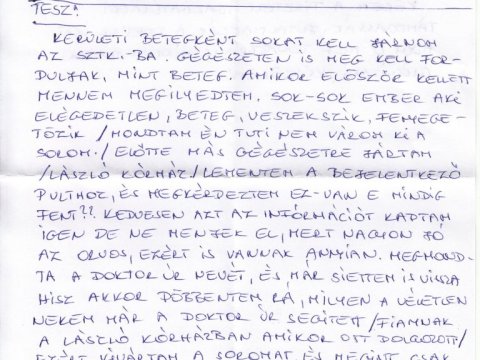 TESZ!
KERÜLETI BETEGKÉNT SOKAT KELL JÁRNOM
AZ SZTK-BA. GÉGÉSZETEN IS MEG KELL FOR-
DULJAK, MINT BETEG. AMIKOR ELŐSZÖR KELLETT
MENNEM MEGILYEDTEM. SOK-SOK EMBER AKI
ELÉGEDETLEN, BETEG, VESZEKSZIK, FENYEGE-
TŐZIK /MONDTAM ÉN TUTI NEM VÁROM KI A
SOROM./ ELŐTTE MÁS GÉGÉSZETRE JÁRTAM
/LÁSZLÓ KÓRHÁZ/ LEMENTEM A BEJELENTKEZŐ
PULTHOZ, ÉS MEGKÉRDEZTEM EZ-VAN E MINDIG
FENT?? KEDVESEN AZT AZ INFORMÁCIÓT KAPTAM
IGEN DE NE MENJEK EL, MERT NAGYON JÓ
AZ ORVOS, EZÉRT IS VANNAK ANNYIAN. MEGMOND-
TA A DOKTOR ÚR NEVÉT, ÉS MÁR SIETTEM IS VISSZA
HISZ AKKOR DÖBBENTEM RÁ, MILYEN A VÉLETLEN
NEKEM MÁR A DOKTOR ÚR SEGÍTETT /FIAMNAK
A LÁSZLÓ KÓRHÁZBAN AMIKOR OTT DOLGOZOTT/
EZÉRT KIVÁRTAM A SOROMAT, ÉS MEGINT CSAK